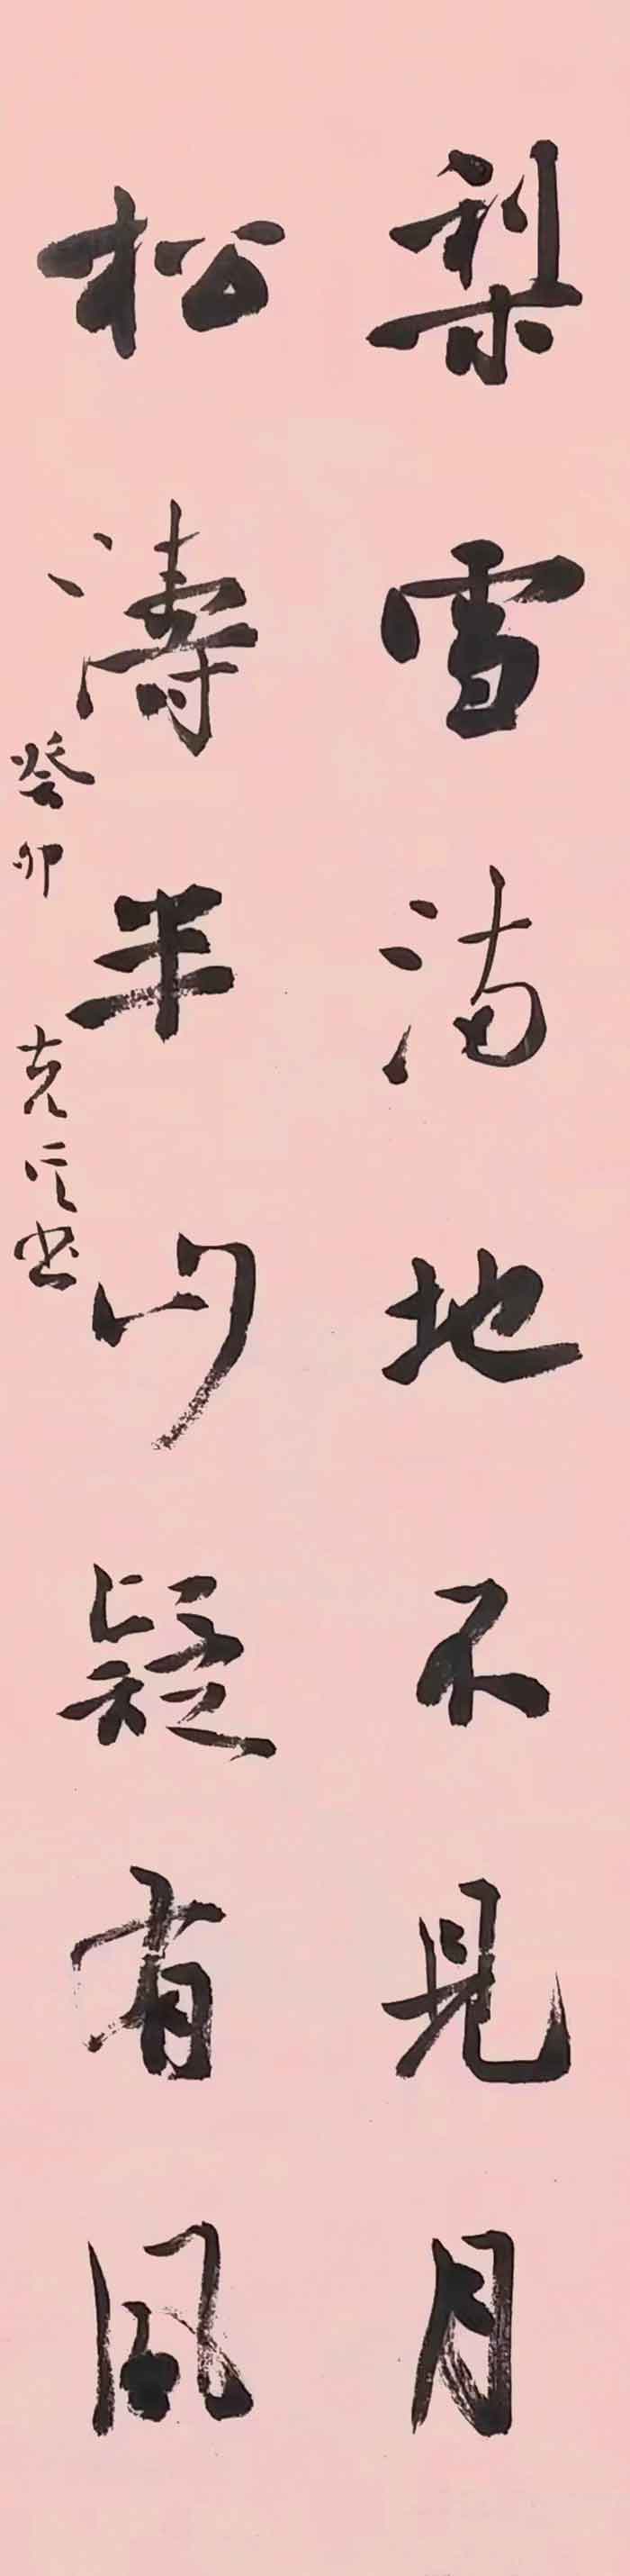 梨雪满地不見月
松濤半山疑有風
癸卯 克讠书